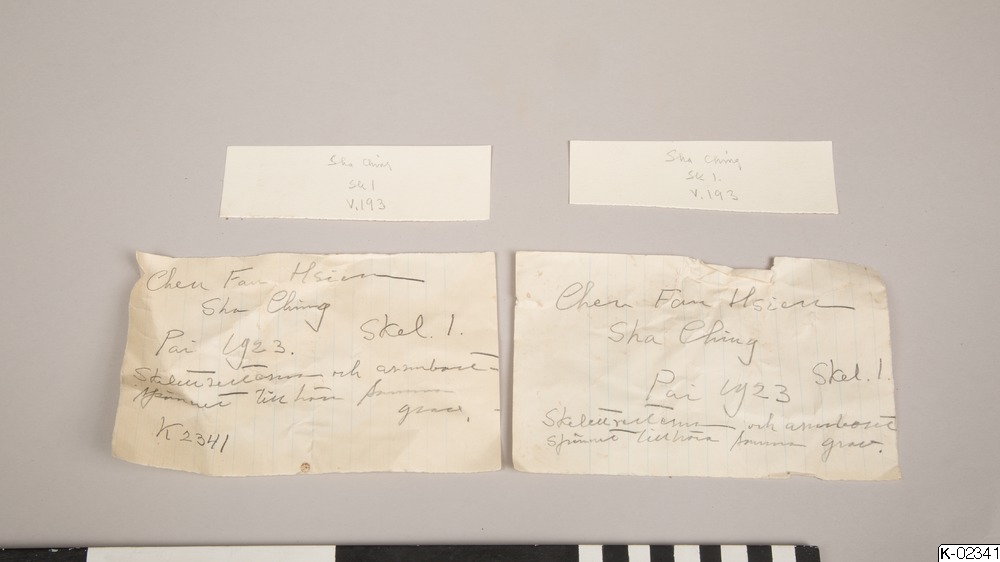 Sha Ching
Sk 1
V.193
Sha Ching
Sk 1.
V.193
Chen Fan Hsien
Sha Ching
Pai 1923. Skel. 1.
Skelettresterna och armborst-
spännet tillhöra samma
grav.
K 2341
Chen Fan Hsien
Sha Ching
Pai 1923 Skel. 1.
Skelettresterna och armborst
spännet tillhöra samma grav.
K-02341